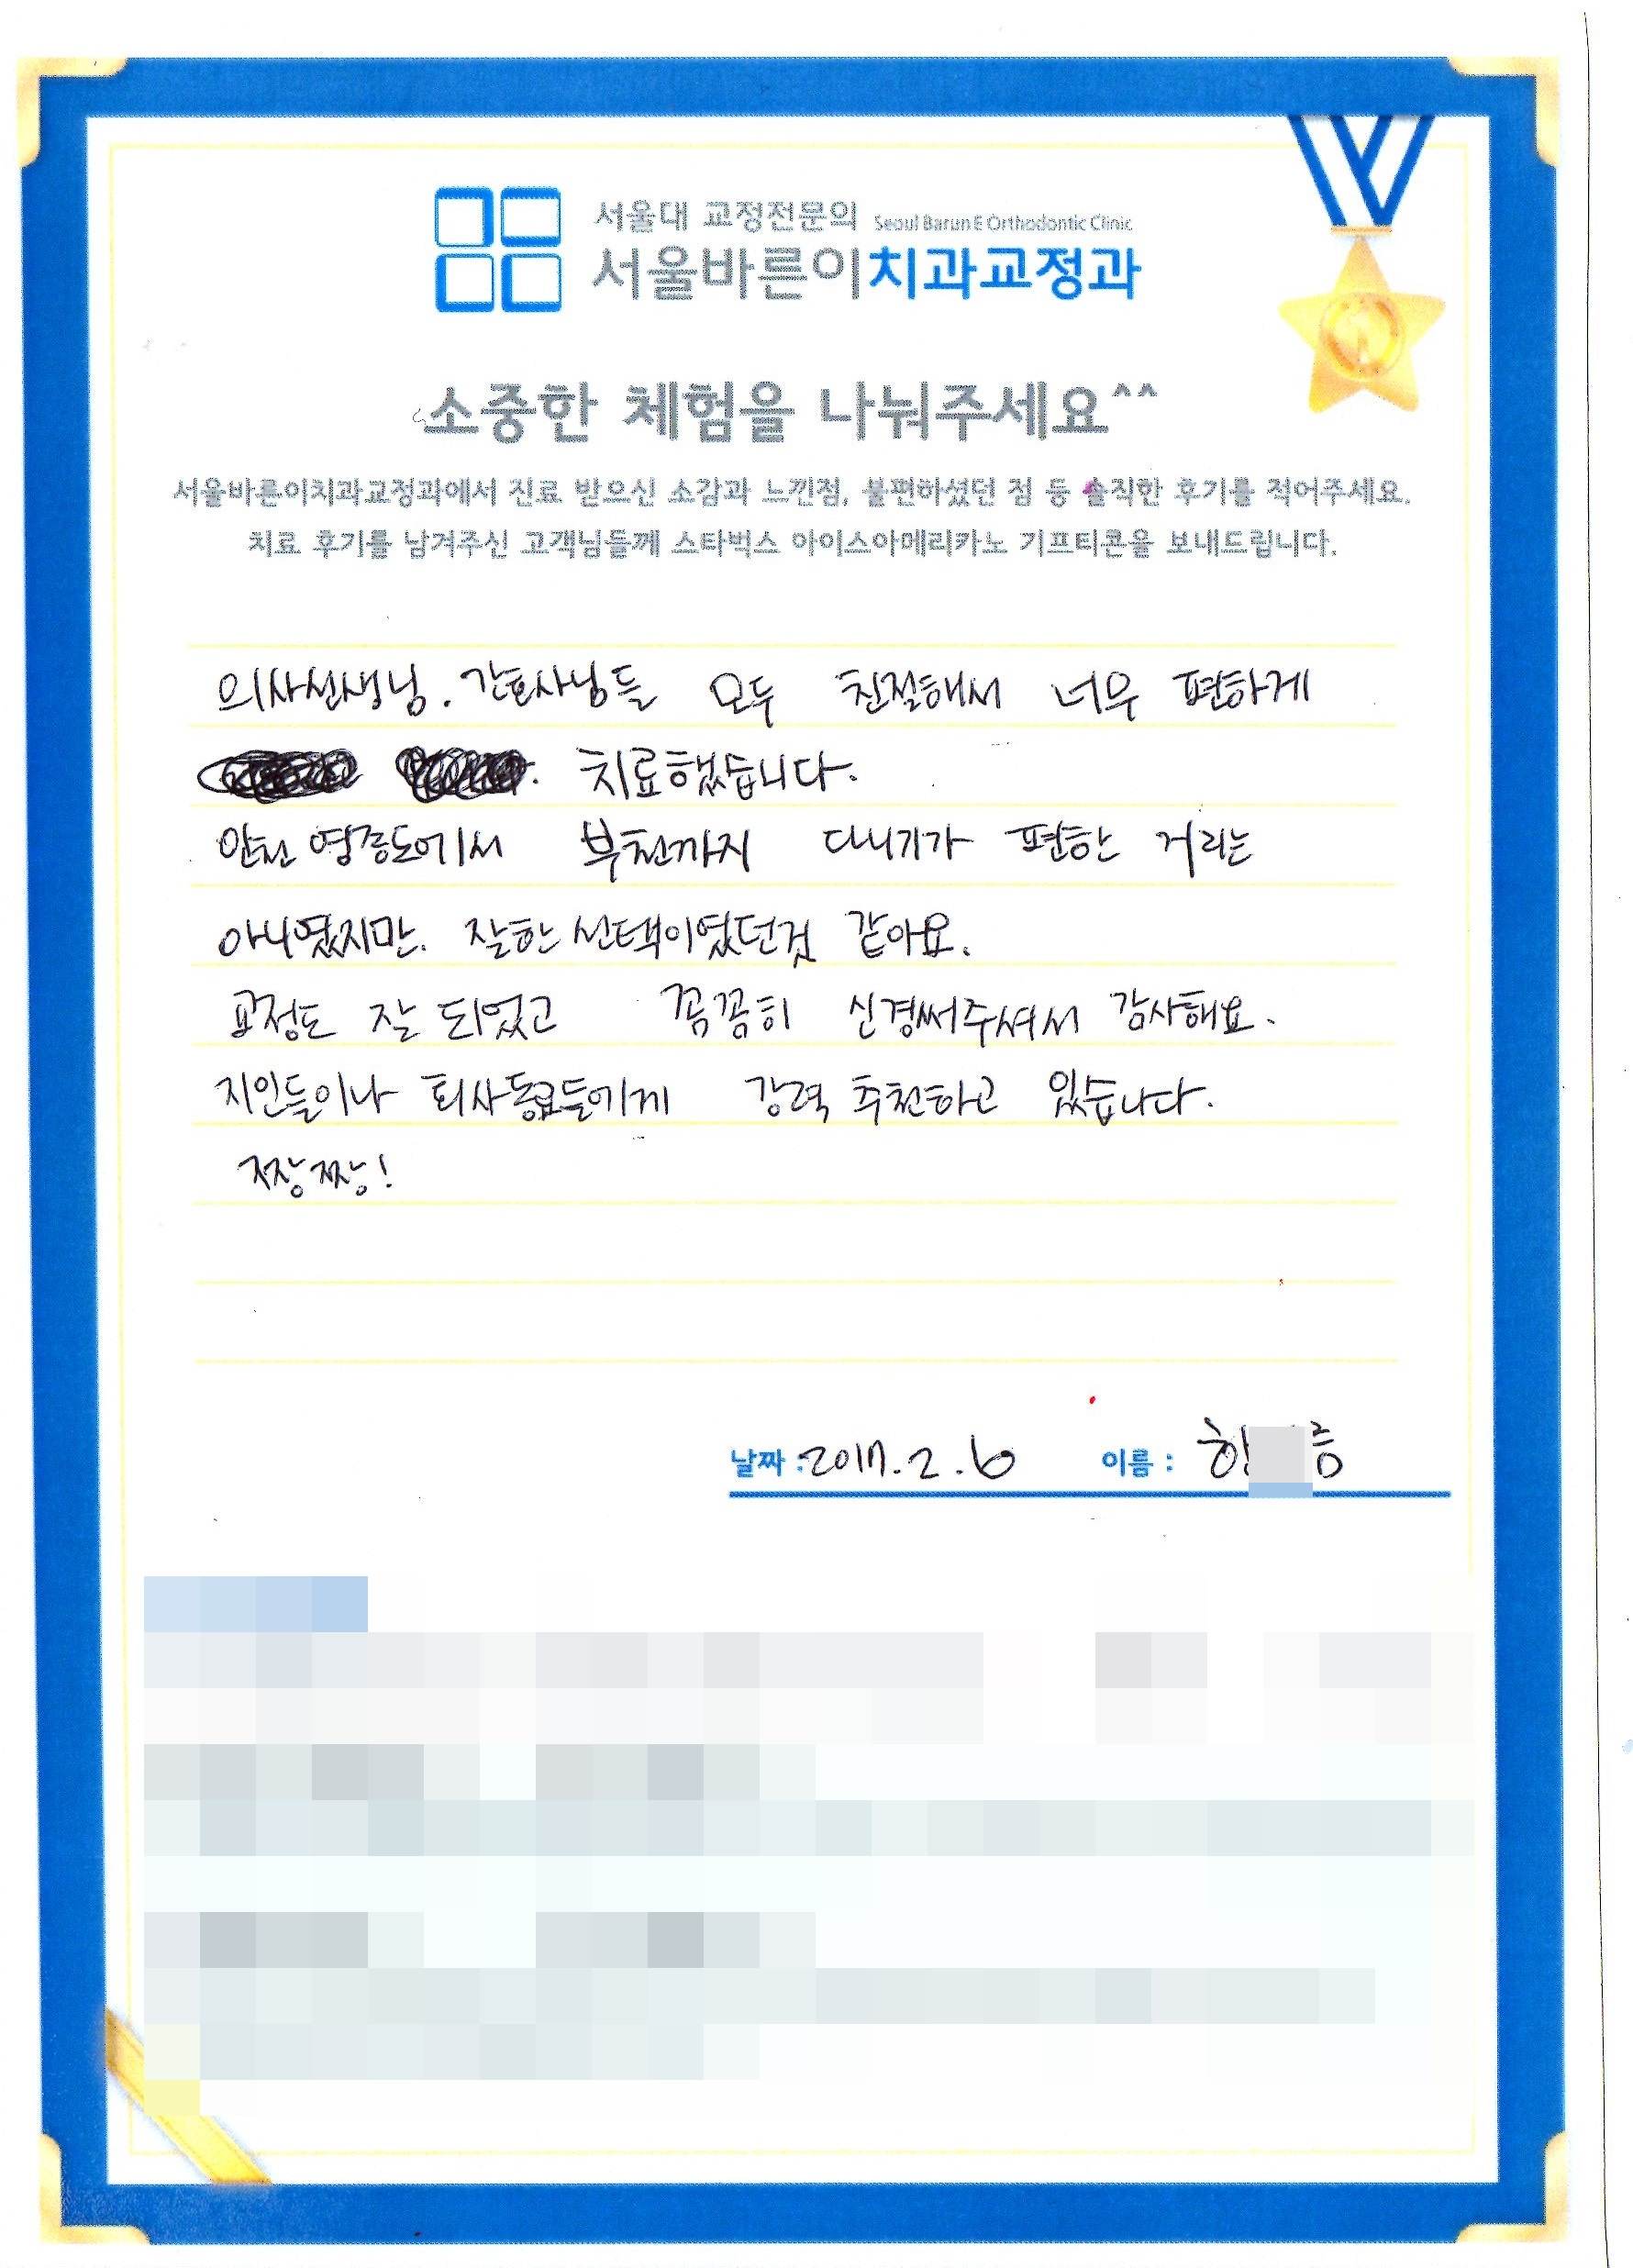 서울대 교정전문의 Seoul Barun E Orthodontic Clinic
서울바른이치과교정과
소중한 체험을 나눠주세요^^
서울바른이치과교정과에서 진료 받으신 소감과 느낀점, 불편하셨던 점 등 솔직한 후기를 적어주세요.
치료 후기를 남겨주신 고객님들께 스타벅스 아이스아메리카노 기프티콘을 보내드립니다.
의사선생님. 간호사님들 모두 친절해서 너무 편하게
치료했습니다.
인천 영종도에서 부천까지 다니기가 편한 거리는
아니였지만. 잘한 선택이였던것 같아요.
교정도 잘 되었고 꼼꼼히 신경써주셔서 감사해요.
지인들이나 회사동료들에게 강력 추천하고 있습니다.
짱짱!
날짜 : 2017. 2. 6 이름 : 한